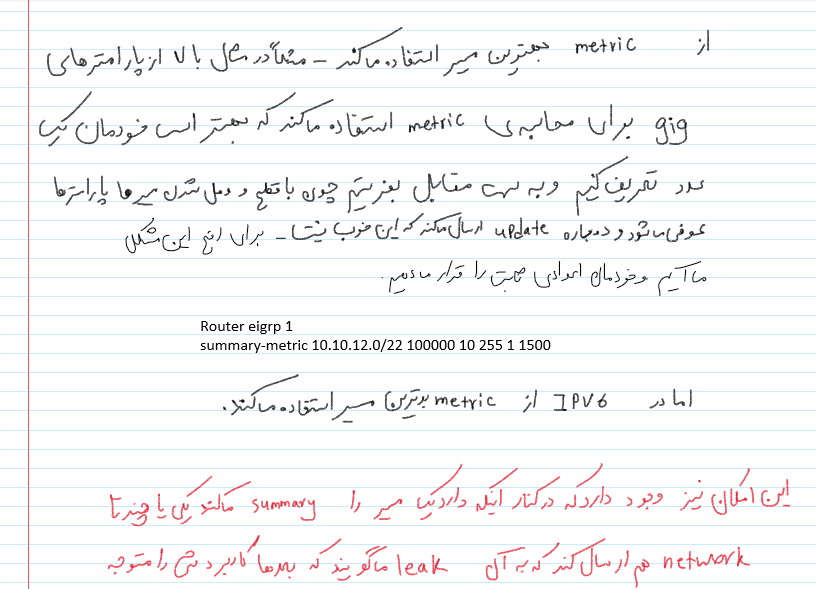 از metric بهترین مسیر استفاده میکند – مثلاً در مثال بالا از پارامترهای
gig برای محاسبه ی metric استفاده میکند که بهتر است خودمان یک
عدد تعریف کنیم و به سمت مقابل بفرستیم چون با قطع و وصل شدن مسیرها پارامترها
عوض میشود و دوباره update ارسال میکند که این خوب نیست – برای رفع این مشکل
ما آییم و خودمان اعدادی ثابت را قرار میدهیم.
Router eigrp 1
summary-metric 10.10.12.0/22 100000 10 255 1 1500
اما در IPV6 از metric بدترین مسیر استفاده میکند.
این امکان نیز وجود دارد که در کنار اینکه دارد یک مسیر را summary میکند یکی یا چندتا
network هم ارسال کند که به آن leak میگویند که بعدها کاربردش را متوجه